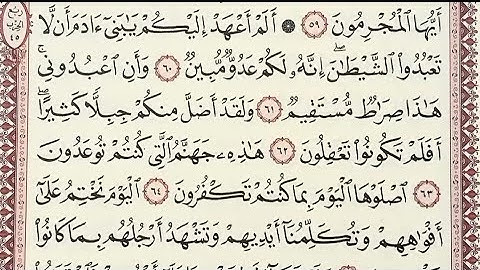 ربع
الحزب
٤٥
أَيُّهَا ٱلْمُجْرِمُونَ ٥٩ ۞ أَلَمْ أَعْهَدْ إِلَيْكُمْ يَٰبَنِىٓ ءَادَمَ أَن لَّا
تَعْبُدُوا۟ ٱلشَّيْطَٰنَ ۖ إِنَّهُۥ لَكُمْ عَدُوٌّ مُّبِينٌ ٦٠ وَأَنِ ٱعْبُدُونِى ۚ
هَٰذَا صِرَٰطٌ مُّسْتَقِيمٌ ٦١ وَلَقَدْ أَضَلَّ مِنكُمْ جِبِلًّا كَثِيرًا ۖ
أَفَلَمْ تَكُونُوا۟ تَعْقِلُونَ ٦٢ هَٰذِهِۦ جَهَنَّمُ ٱلَّتِى كُنتُمْ تُوعَدُونَ
٦٣ ٱصْلَوْهَا ٱلْيَوْمَ بِمَا كُنتُمْ تَكْفُرُونَ ٦٤ ٱلْيَوْمَ نَخْتِمُ عَلَىٰٓ
أَفْوَٰهِهِمْ وَتُكَلِّمُنَآ أَيْدِيهِمْ وَتَشْهَدُ أَرْجُلُهُم بِمَا كَانُوا۟